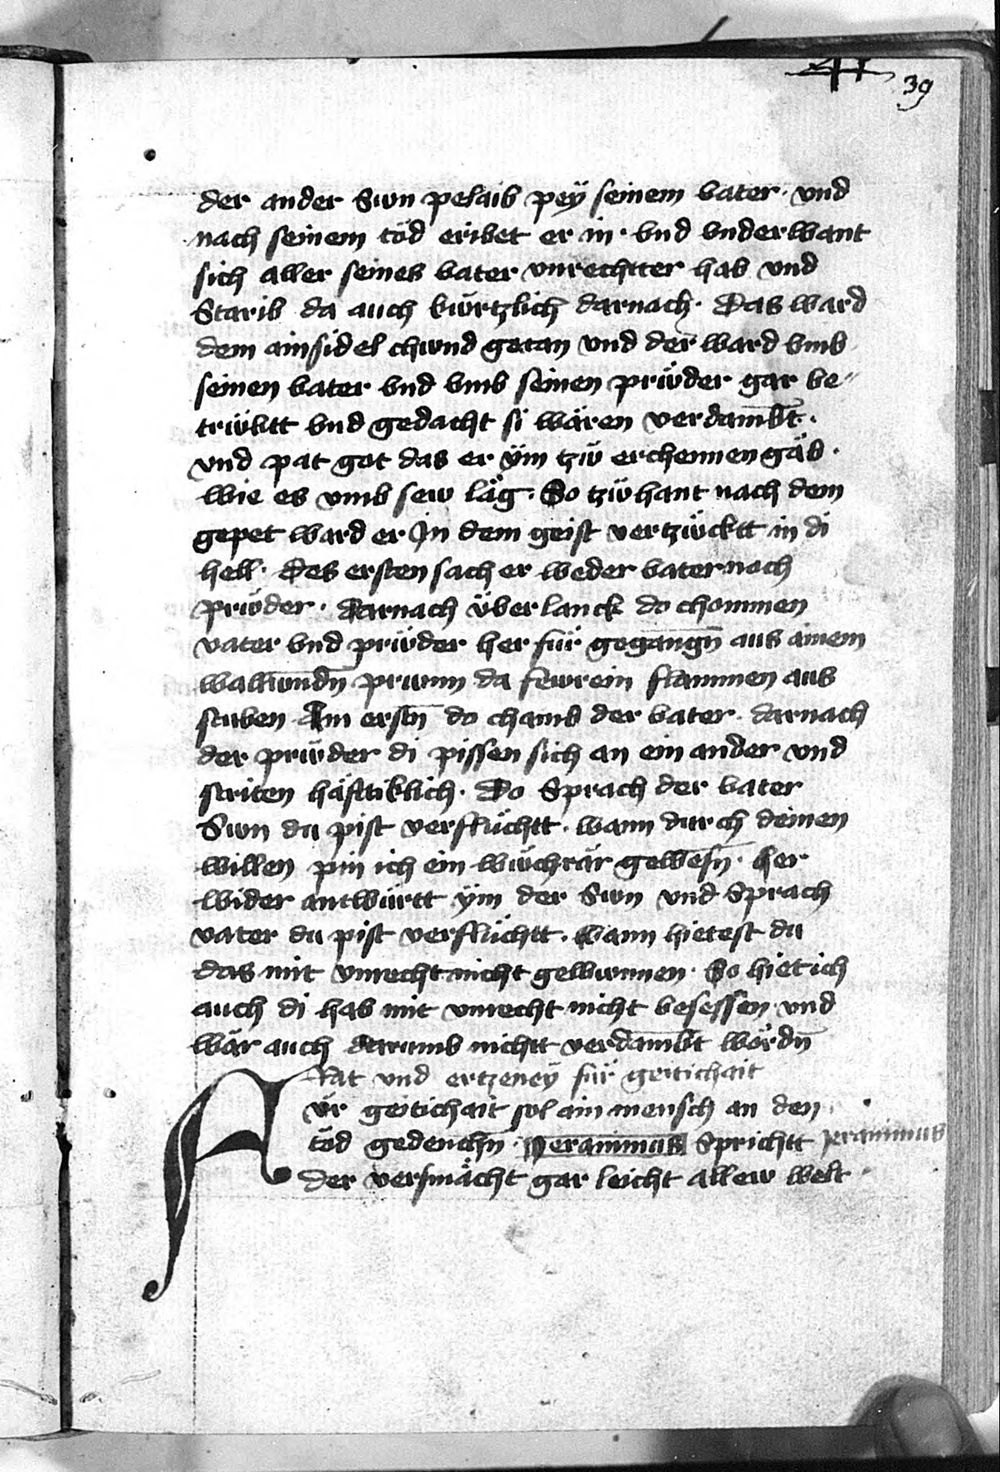 39
der ander Swn pelaib peÿ seinem vater · vnd
nach seinem töd eribet er in · vnd vnderwant
sich aller seines vater vnrechtter hab vnd
Starib da auch kürtzlich darnach · Das ward
dem ainsidel chwnd getan vnd der ward vmb
seinen vater vnd vmb seinen prüder gar be〃
trübtt vnd gedacht si wären verdambt ·
vnd pat got das er ÿm tzü erchennen gäb ·
wie es vmb sew läg · So tzü hant nach dem
gepet ward er In dem geist vertzücktt in di
hell · Des ersten sach er weder vater noch
prüder · Darnach über lanck do chommen
vater vnd prüder her für gegangn̄ aus ainem
wallundn̄ prunn da fewrein flammen aus
stuben Am erstn̄ do chamb der vater · darnach
der prüder di pissen sich an ein ander vnd
striten häftiklich · Do Sprach der vater
Swn du pist verflüchtt · wann durch deinen
willen pin ich ein wüchrär gewesn̄ · Her
wider antwürtt ÿm der Swn vnd Sprach
vater du pist verflüchtt · Wann hietest du
das mit vnrecht nicht gewunnen · So hiet ich
auch di hab mit vnrecht nicht besessen vnd
wär auch darumb nichtt verdambt wördn̄
Rat vnd ertzeneÿ für geitichait
Für geitichait sol ain mensch an den
töd gedenchn̄ · Jeranimus Sprichtt Jeranimus
der versmächt gar leicht allew welt ·